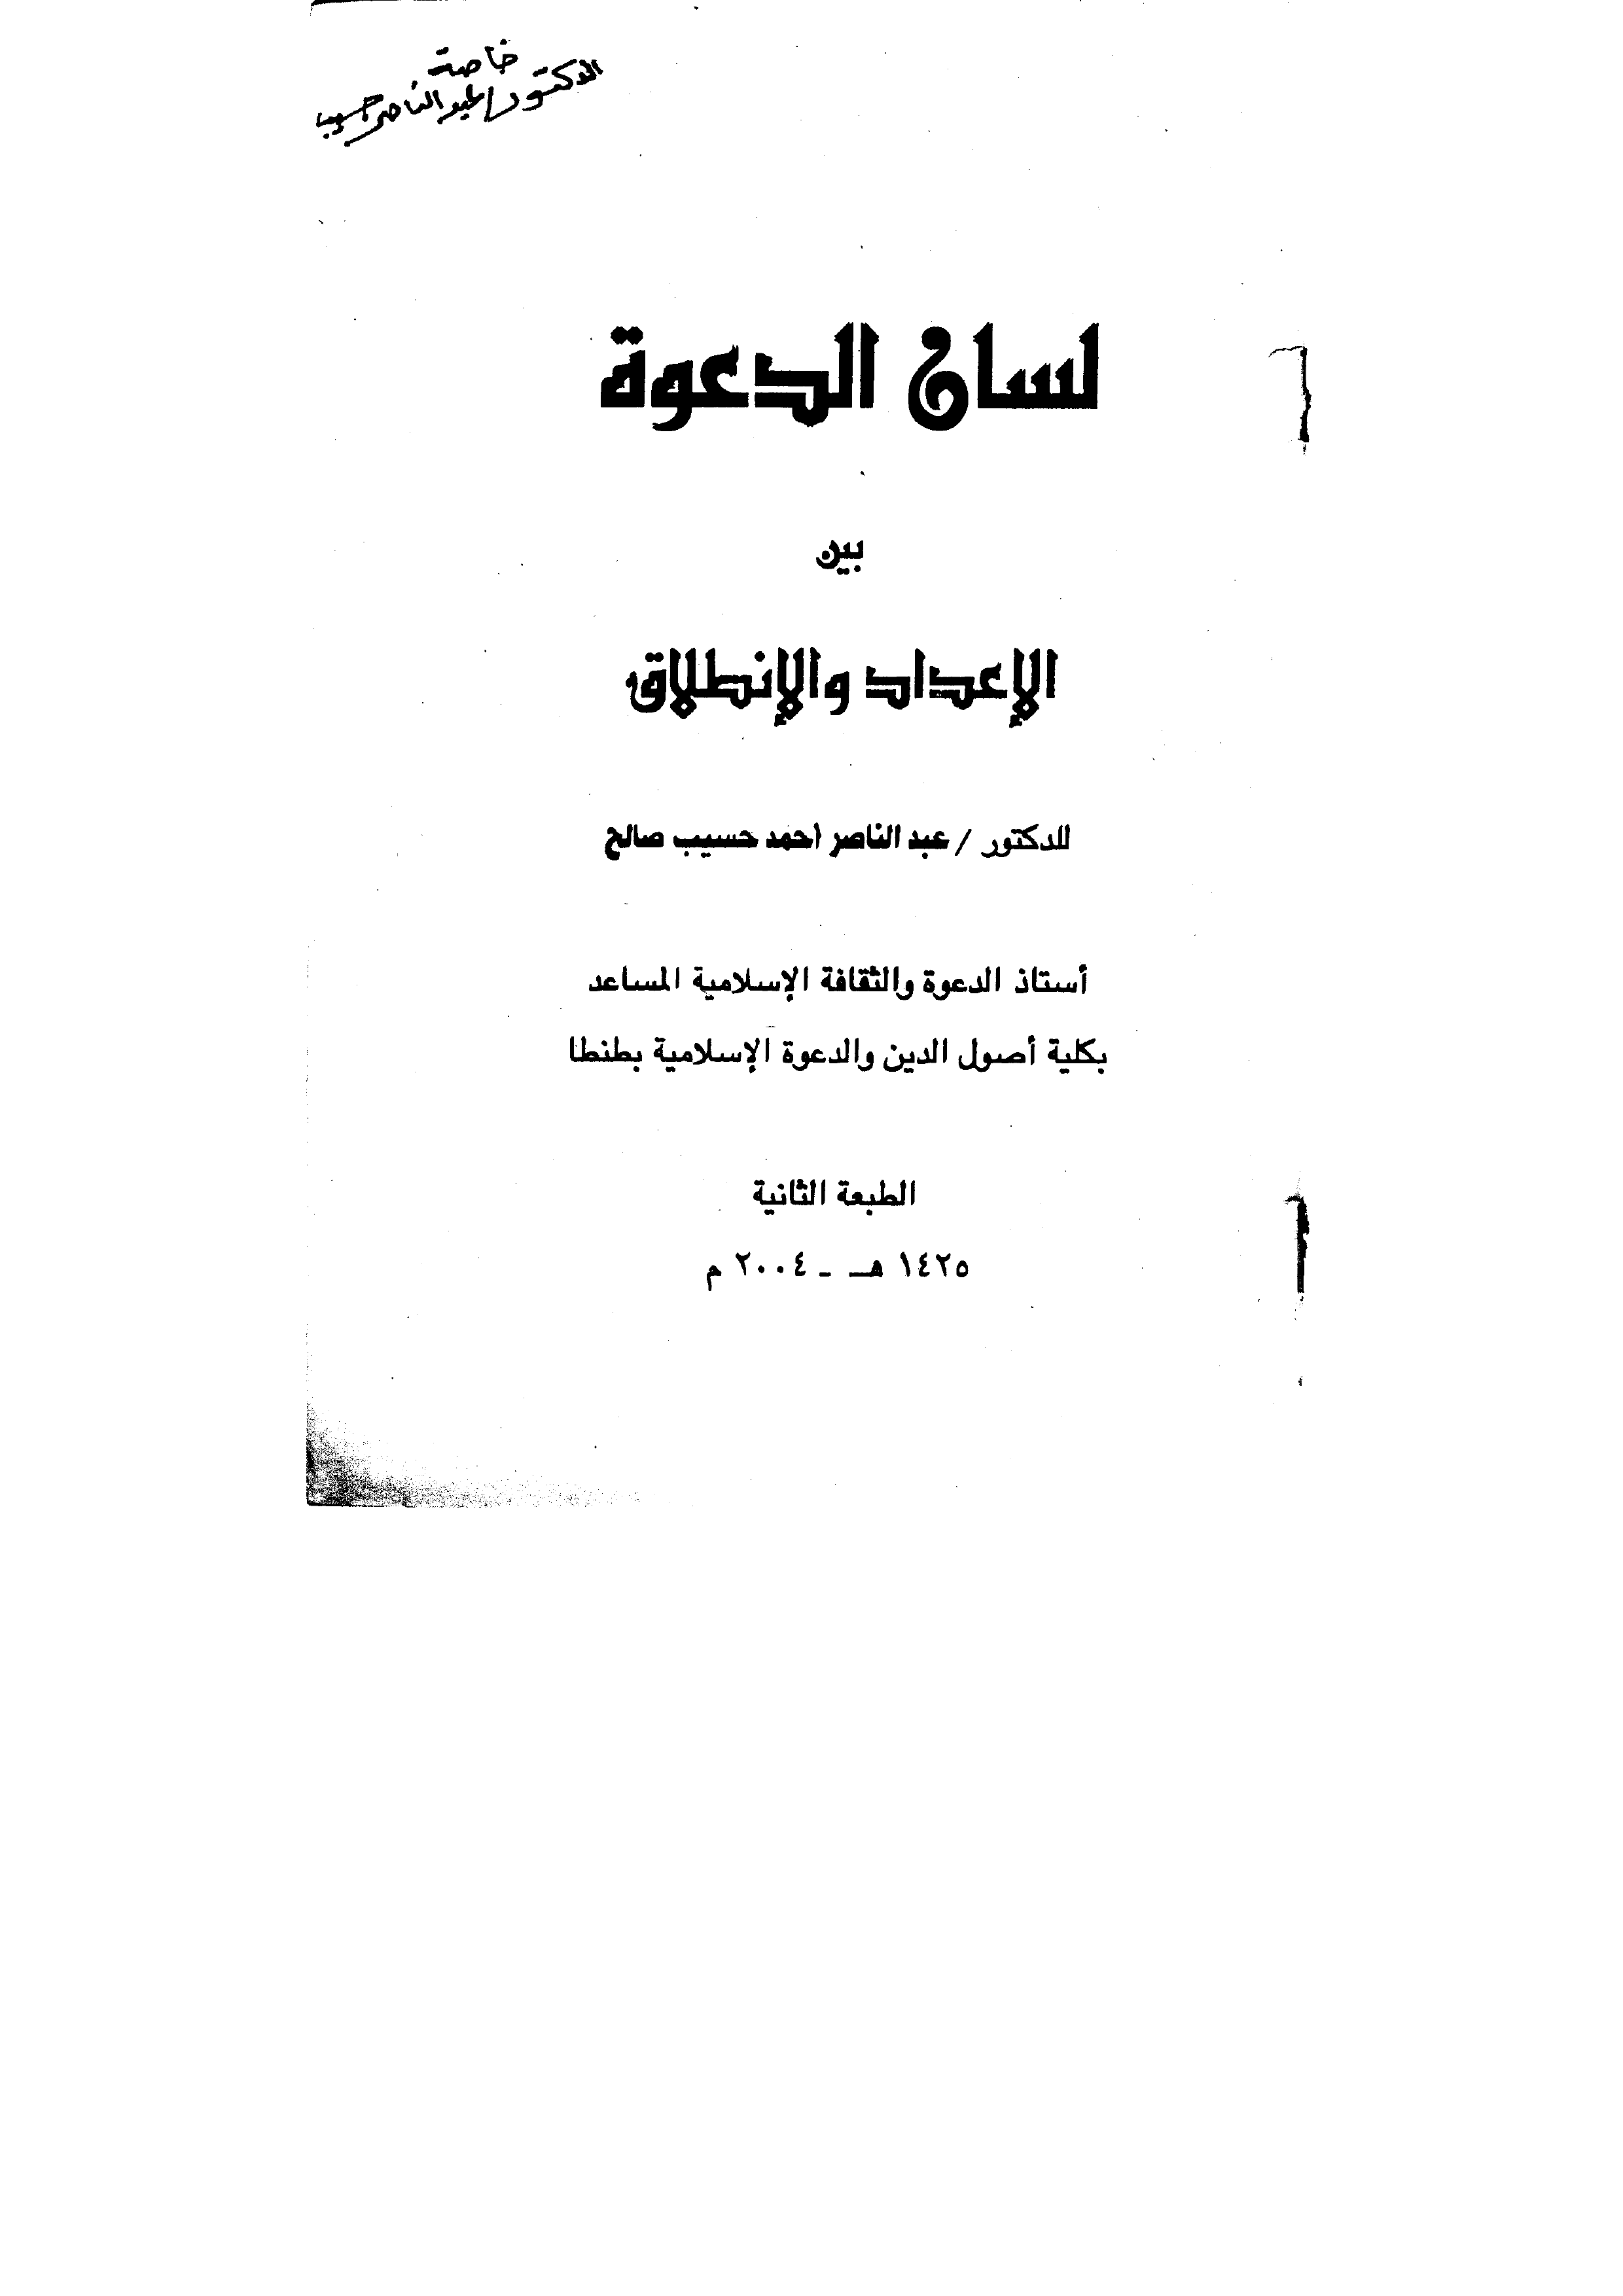 خاصة
الدكتور/عبد الناصر حسيب
لسان الدعوة
بين
الإعداد والإنطلاق
للدكتور / عبد الناصر أحمد حسيب صالح
أستاذ الدعوة والثقافة الإسلامية المساعد
بكلية أصول الدين والدعوة الإسلامية بطنطا
الطبعة الثانية
١٤٢٥ هـ - ٢٠٠٤ م